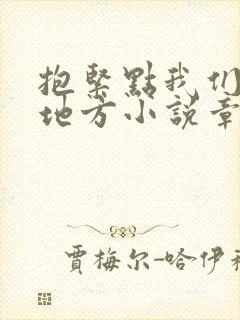 抱緊點我们
地方小説章
賈梅尔-哈伊